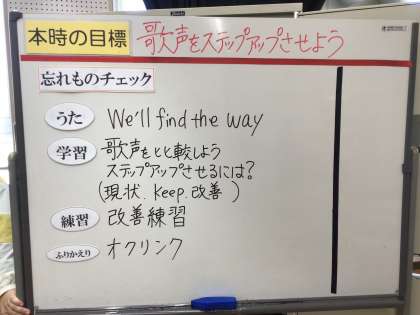 本時の目標 歌声をステップアップさせよう
忘れものチェック
うた We'll find the way
学習 歌声をヒヒ較しよう
ステップアップさせるには?
(現状、Keep、改善)
練習 改善練習
ふりかえり オクリンク